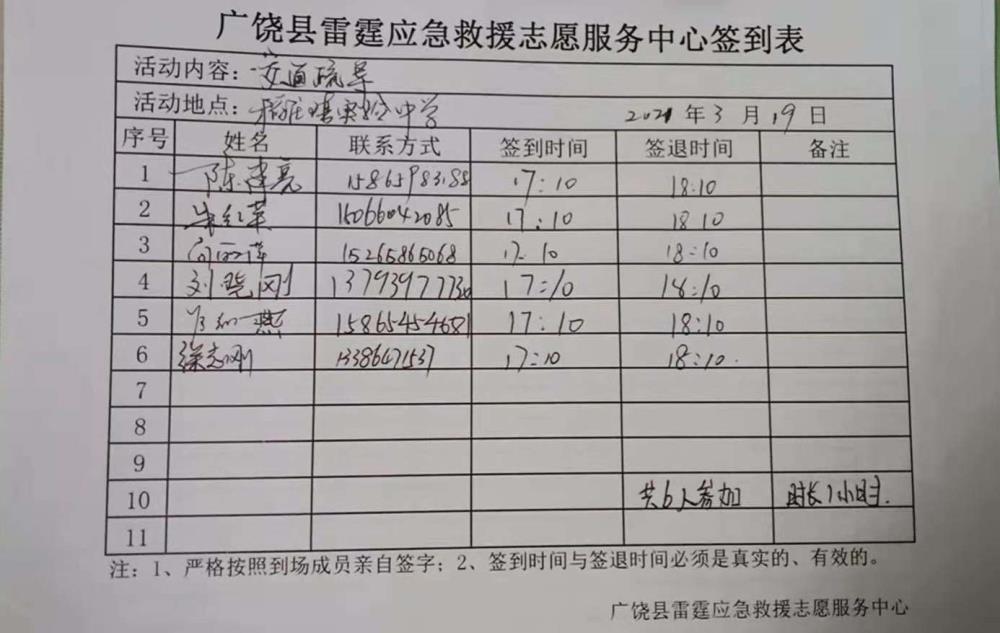 广饶县雷霆应急救援志愿服务中心签到表
活动内容：交通疏导
活动地点：稻庄镇实验中学 2021年3月19日
序号 姓名 联系方式 签到时间 签退时间 备注
1 陈建亮 15865983188 17:10 18:10
2 朱红英 15066042085 17:10 18 10
3 15265865068 17 10 18:10
4 刘晓刚 13793977730 17:10 18:10
5 燕 15865454681 17:10 18:10
6 徐志刚 13386471537 17:10 18:10.
7
8
9
10 共6人参加 时长1小时.
11
注：1、严格按照到场成员亲自签字；2、签到时间与签退时间必须是真实的、有效的。
广饶县雷霆应急救援志愿服务中心